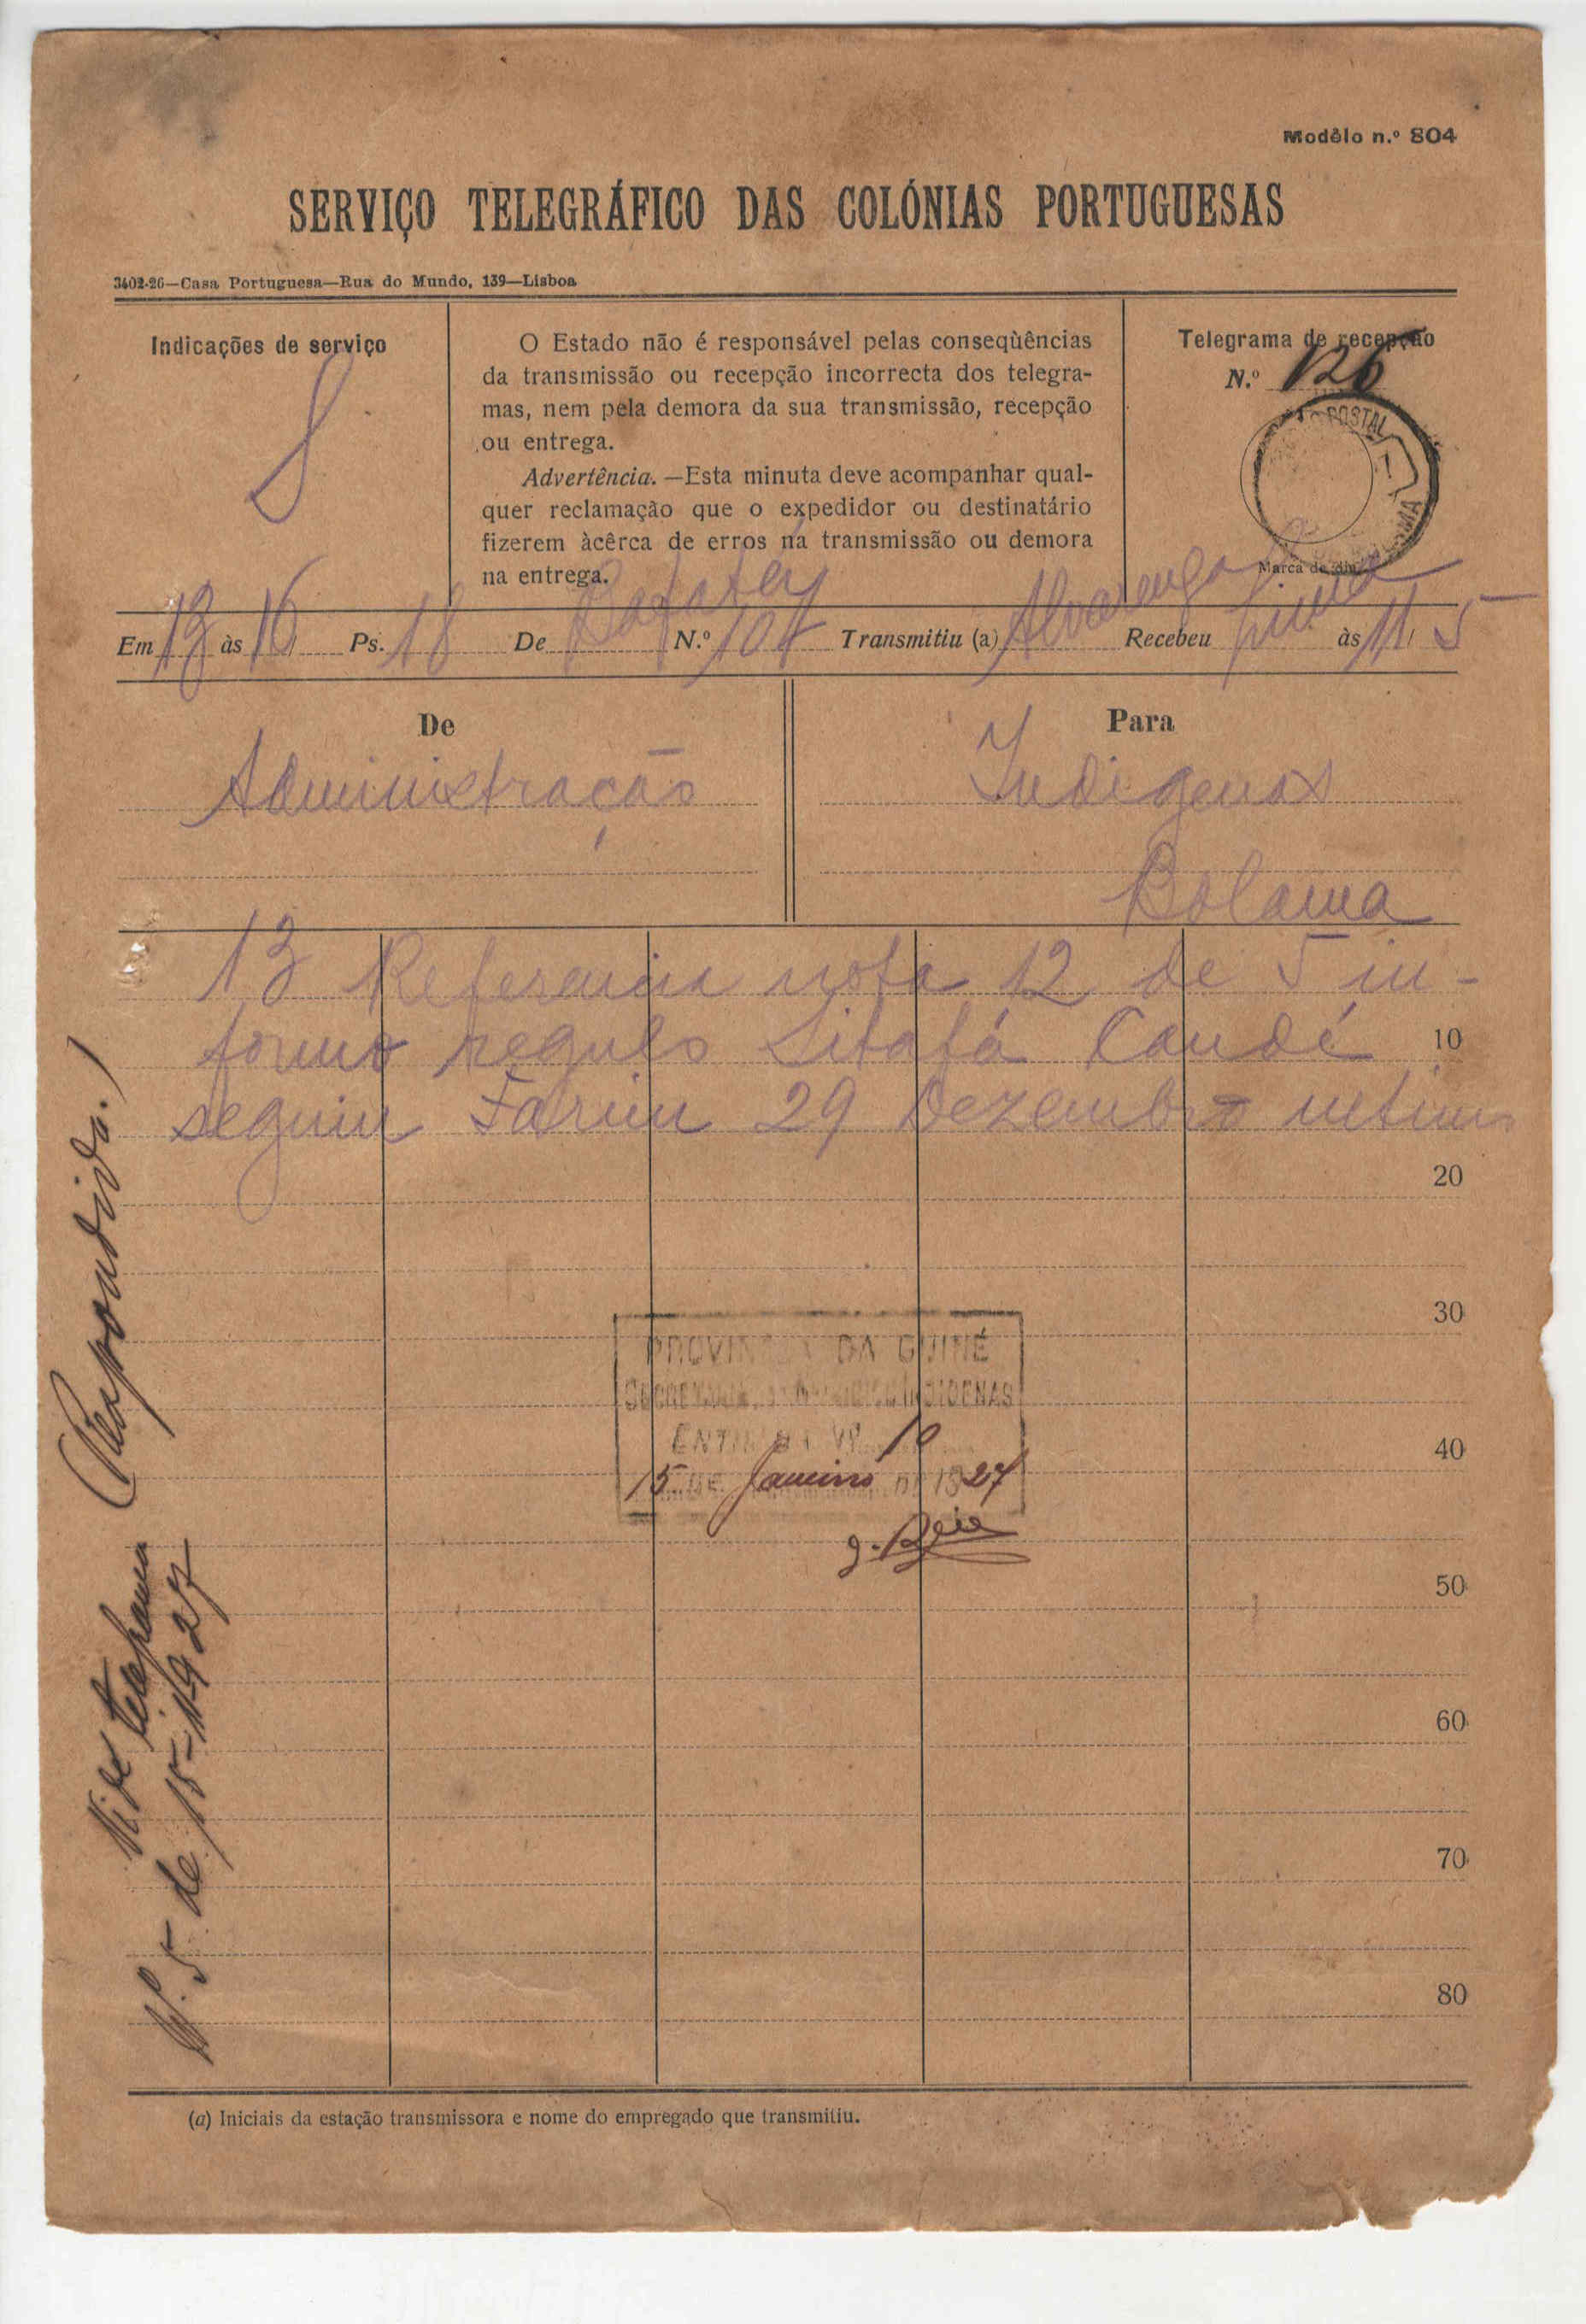 Modêlo n.º 804
SERVIÇO TELEGRÁFICO DAS COLÓNIAS PORTUGUESAS
3402-26—Casa Portuguesa—Rua do Mundo, 139—Lisboa
Indicações de serviço
S
O Estado não é responsável pelas conseqùências
da transmissão ou recepção incorrecta dos telegra-
mas, nem pela demora da sua transmissão, recepção
ou entrega.
Advertência. —Esta minuta deve acompanhar qual-
quer reclamação que o expedidor ou destinatário
fizerem àcêrca de erros na transmissão ou demora
na entrega.
Telegrama de recepção
N.º 126
POSTAL
Marca de dia
Em 13 às 16 Ps. 18 De N.º 104 Transmitiu (a) Alvarenga Recebeu Lima às 11/5
De
Administração
Para
Indigenas
Bolama
13 Referencia nota 12 de 5 in-
formo regulo Sitafá Candé 10
seguiu Farim 29 Dezembro ultimo
20
30
PROVINCIA DA GUINÉ
INDIGENAS
ENTRADA Nº 10
15 DE Janeiro DE 1927
g. Reis
40
50
60
70
80
(Respondido.)
Vide telegrama
N.º 5 de 15-1-927
(a) Iniciais da estação transmissora e nome do empregado que transmitiu.